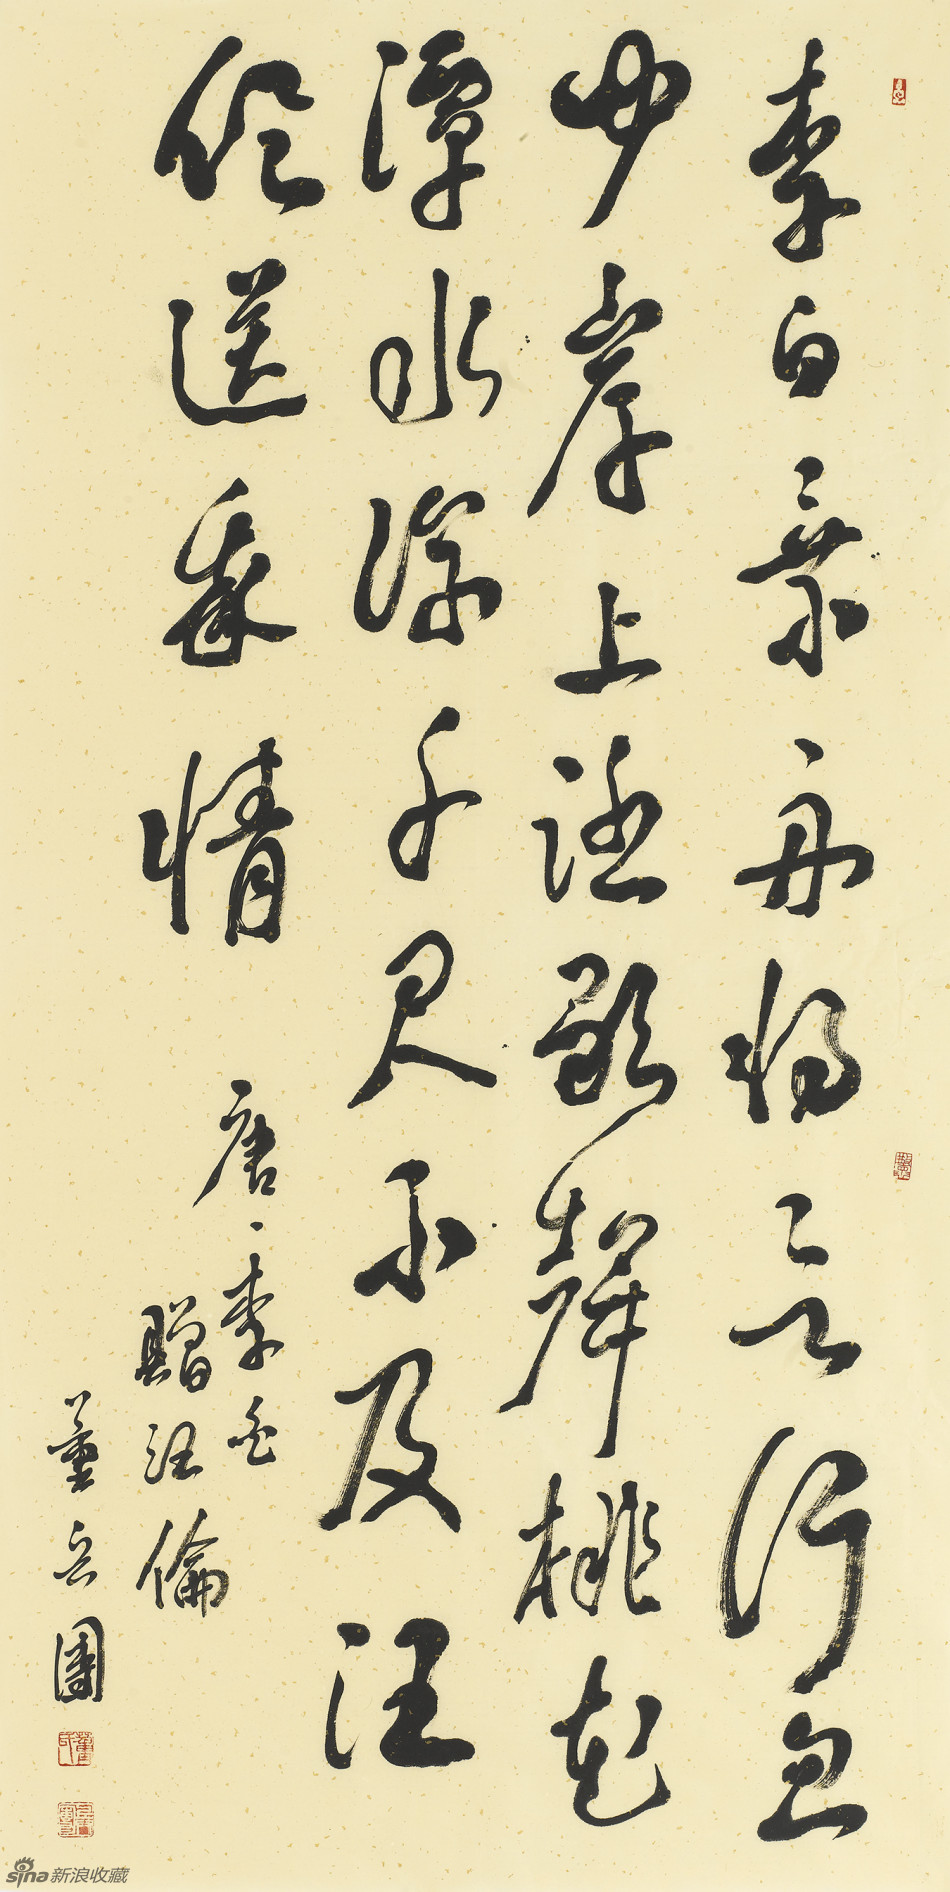 李白乘舟将欲行忽
聞岸上踏歌聲桃花
潭水深千尺不及汪
倫送我情
唐、李白
贈汪倫
董岳團
sina新浪收藏